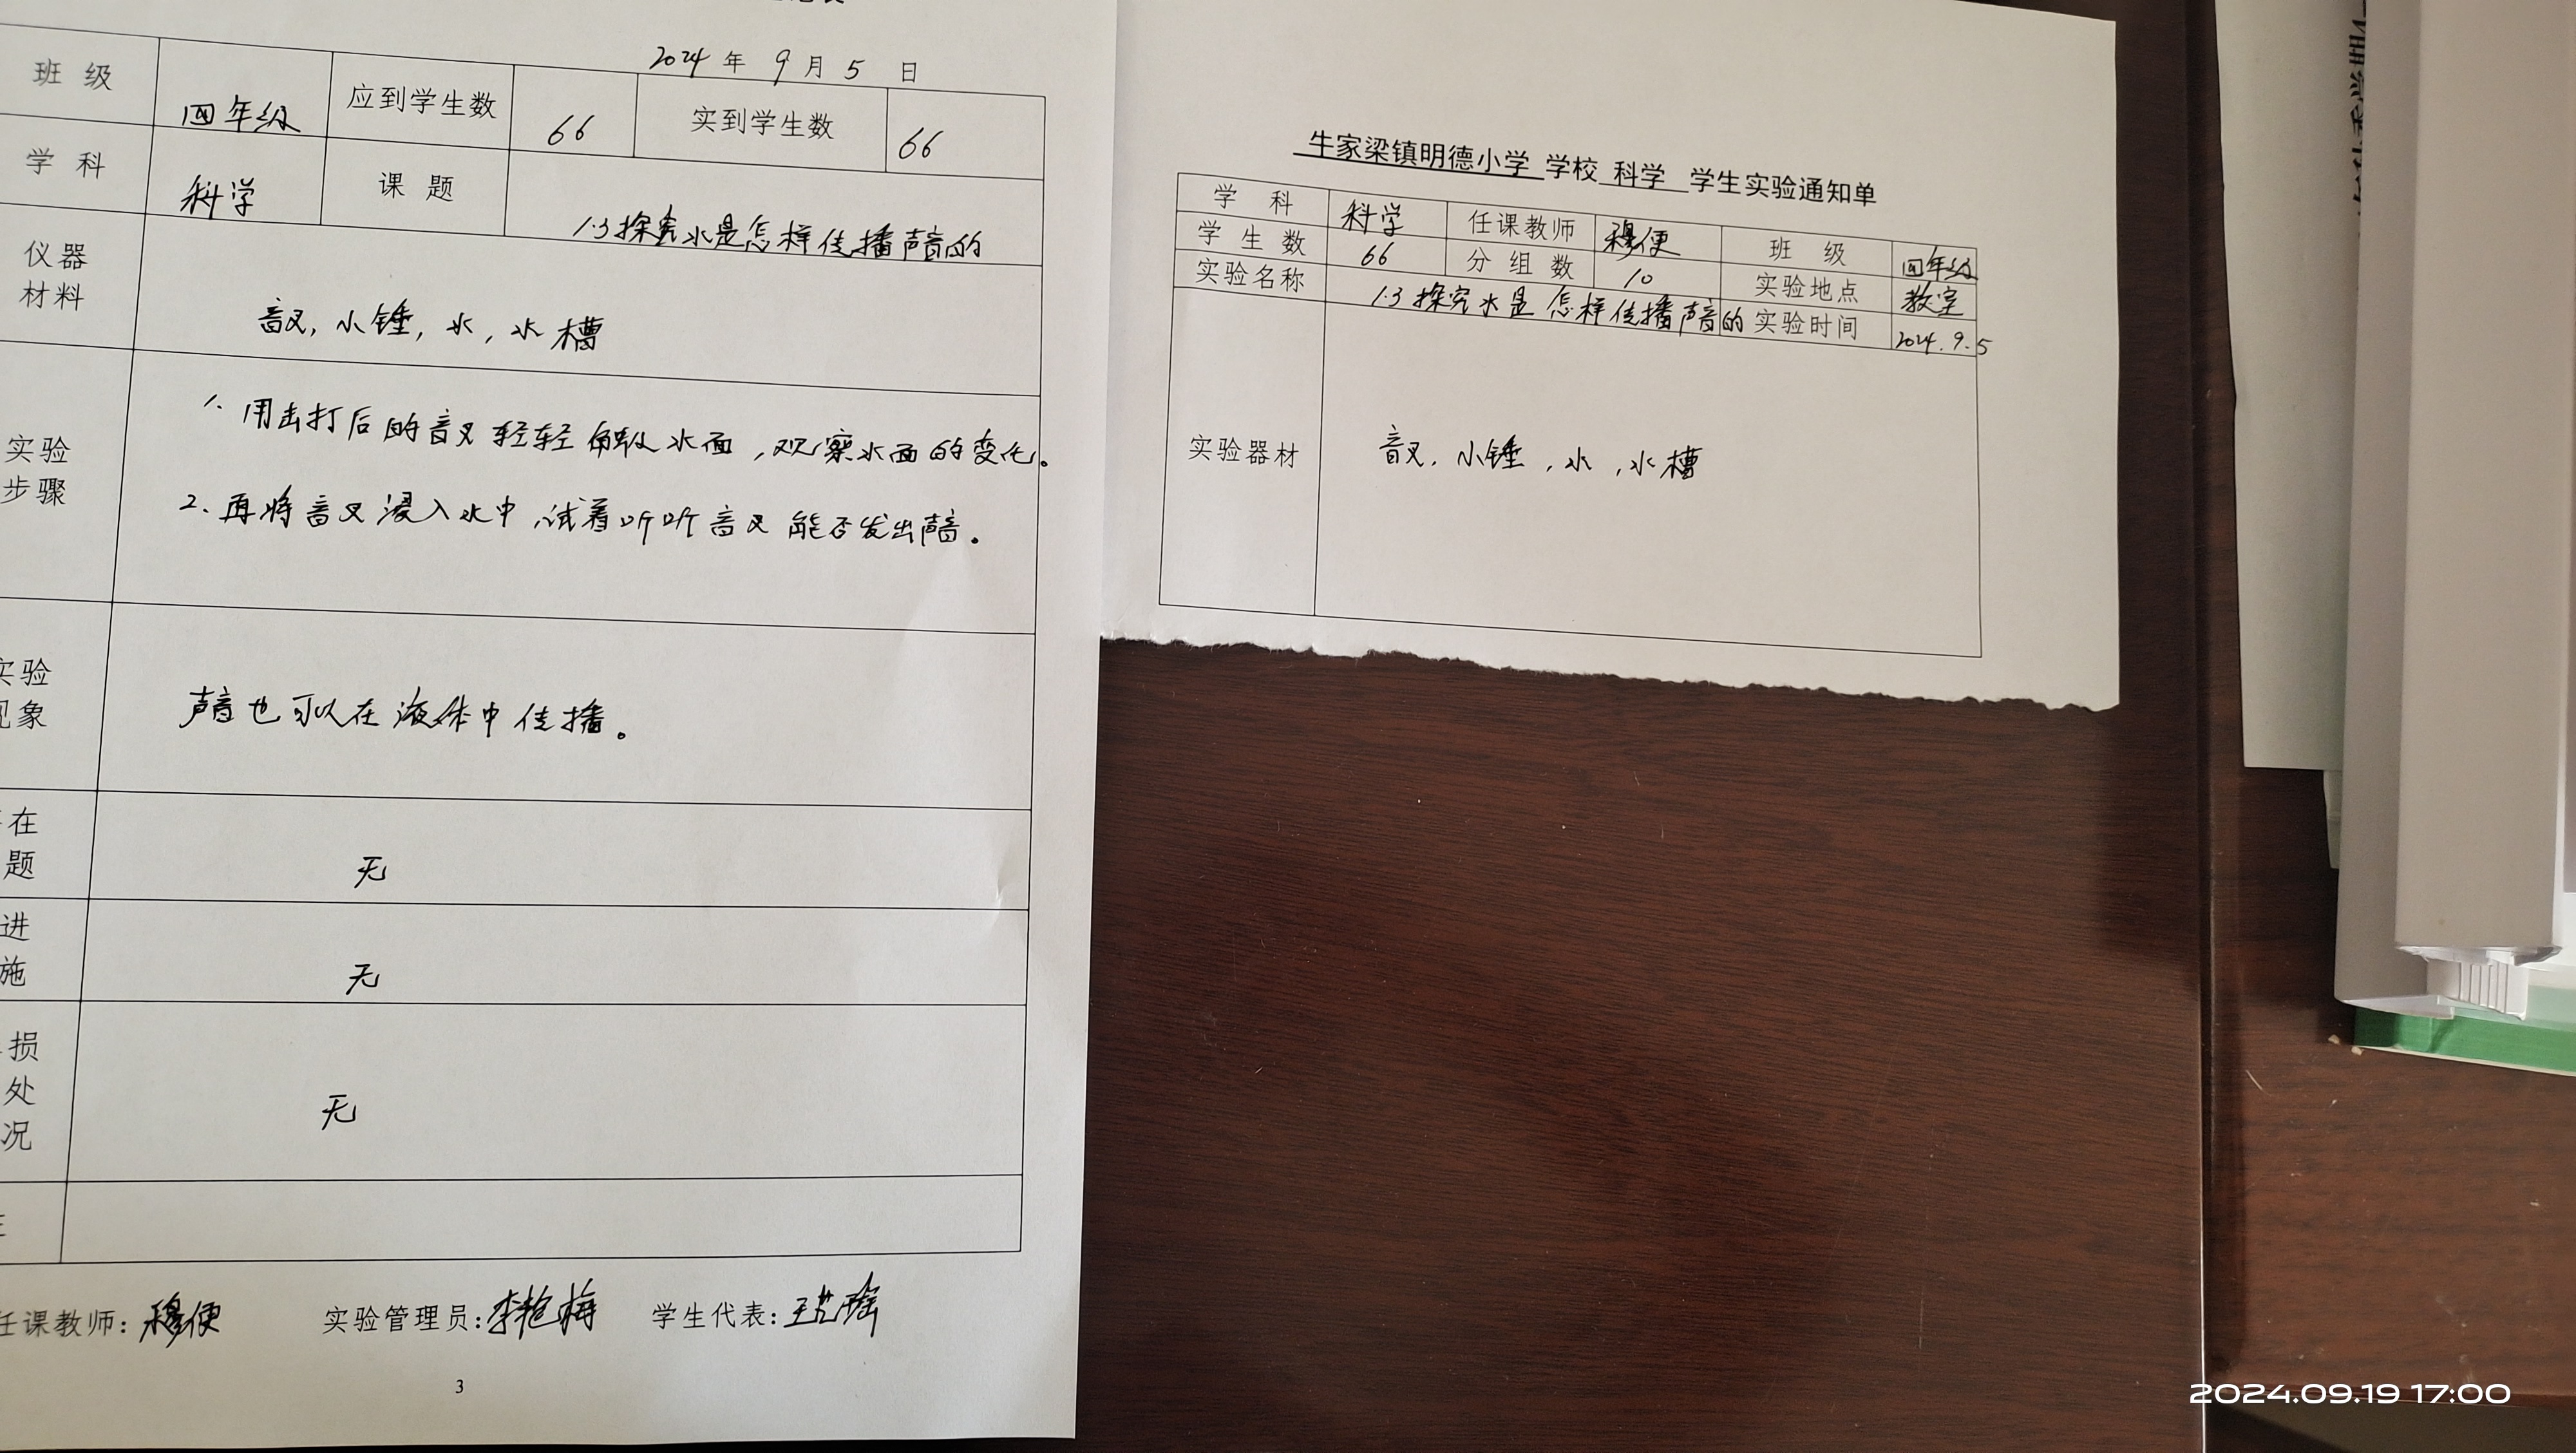 2024 年 9 月 5 日
班 级 四年级 应到学生数 66 实到学生数 66
学 科 科学 课 题 1.3探究水是怎样传播声音的
仪器
材料
音叉, 小锤, 水, 水槽
实验
步骤
1. 用击打后的音叉轻轻触及水面,观察水面的变化。
2、再将音叉浸入水中,试着听听音叉能否发出声音。
实验
现象
声音也可以在液体中传播。
在
题
无
进
施
无
损
处
况
无
任课教师: 穆便 实验管理员: 李艳梅 学生代表:
3
牛家梁镇明德小学 学校 科学 学生实验通知单
学 科 科学 任课教师 穆便 班 级 四年级
学 生 数 66 分 组 数 10 实验地点 教室
实验名称 1.3 探究水是怎样传播声音的 实验时间 2024.9.5
实验器材 音叉, 小锤, 水, 水槽
2024.09.19 17:00